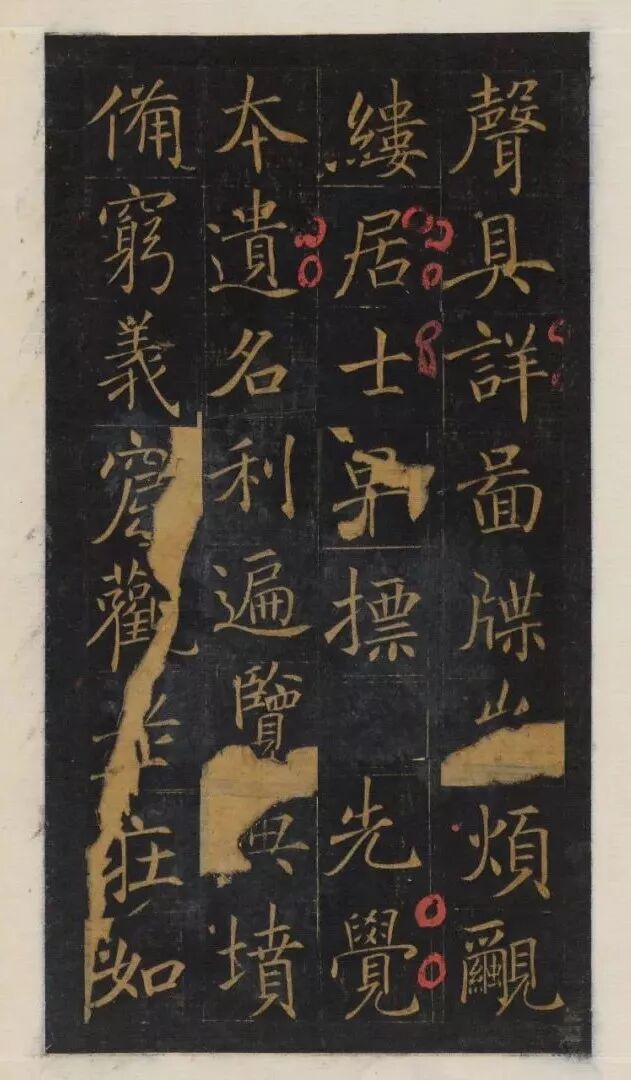 聲具詳啚牒煩覼
縷居士早標先覺
本遺名利遍覽典墳
備窮義窟觀老庒如